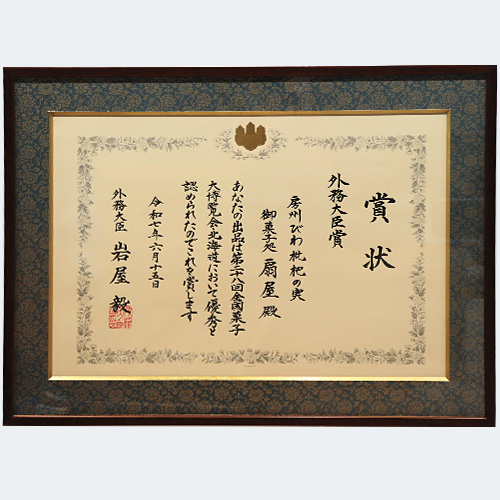 賞状
外務大臣賞
房州びわ枇杷の実
御菓子処 扇屋 殿
あなたの出品は第二八回全国菓子
大博覧会北海道において優秀と
認められたのでこれを賞します
令和七年六月十五日
外務大臣 岩屋毅